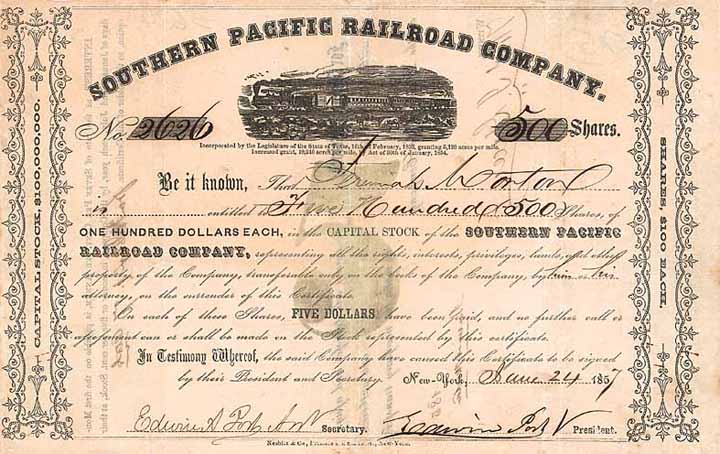 SOUTHERN PACIFIC RAILROAD COMPANY.
No. 2626 500 Shares.
Incorporated by the Legislature of the State of Texas, 16th of February, 1852, granting 5,120 acres per mile.
Increased grant, 10,240 acres per mile, Act of 30th of January, 1854.
Be it known, That Morton
is entitled to Five Hundred (500) Shares, of
ONE HUNDRED DOLLARS EACH, in the CAPITAL STOCK of the SOUTHERN PACIFIC
RAILROAD COMPANY, representing all the rights, interests, privileges, lands, and other
property of the Company, transferable only on the books of the Company, by him or his
attorney, on the surrender of this Certificate.
On each of these Shares, FIVE DOLLARS have been paid, and no further call or
assessment can or shall be made on the Stock represented by this certificate.
In Testimony Whereof, the said Company have caused this Certificate to be signed
by their President and Secretary. New-York, 24 1857
Secretary. Edwin Post President.
Nesbitt & Co., New-York.
CAPITAL STOCK, $100,000,000.
SHARES, $100 EACH.